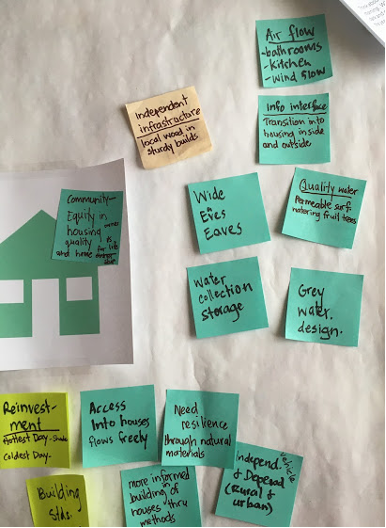 Air flow
-bathrooms
-Kitchen
-wind flow
Info interface
Transition into
housing inside
and outside
Independent
infrastructure
local wood in
sturdy builds
Community-
Equity in
housing
quality
and home
Wide
Eves
Eaves
Quality water
Permeable surf
watering fruit trees
Water
collection
storage
Grey
water.
design.
Reinvest-
ment
Hottest Day- Shade
Coldest Day-
Access
Into houses
flows freely
Need
resilience
through natural
materials
Building
more informed
in building of
houses thru
methods
Independ. Vehicle
& Depend
(Rural &
urban)